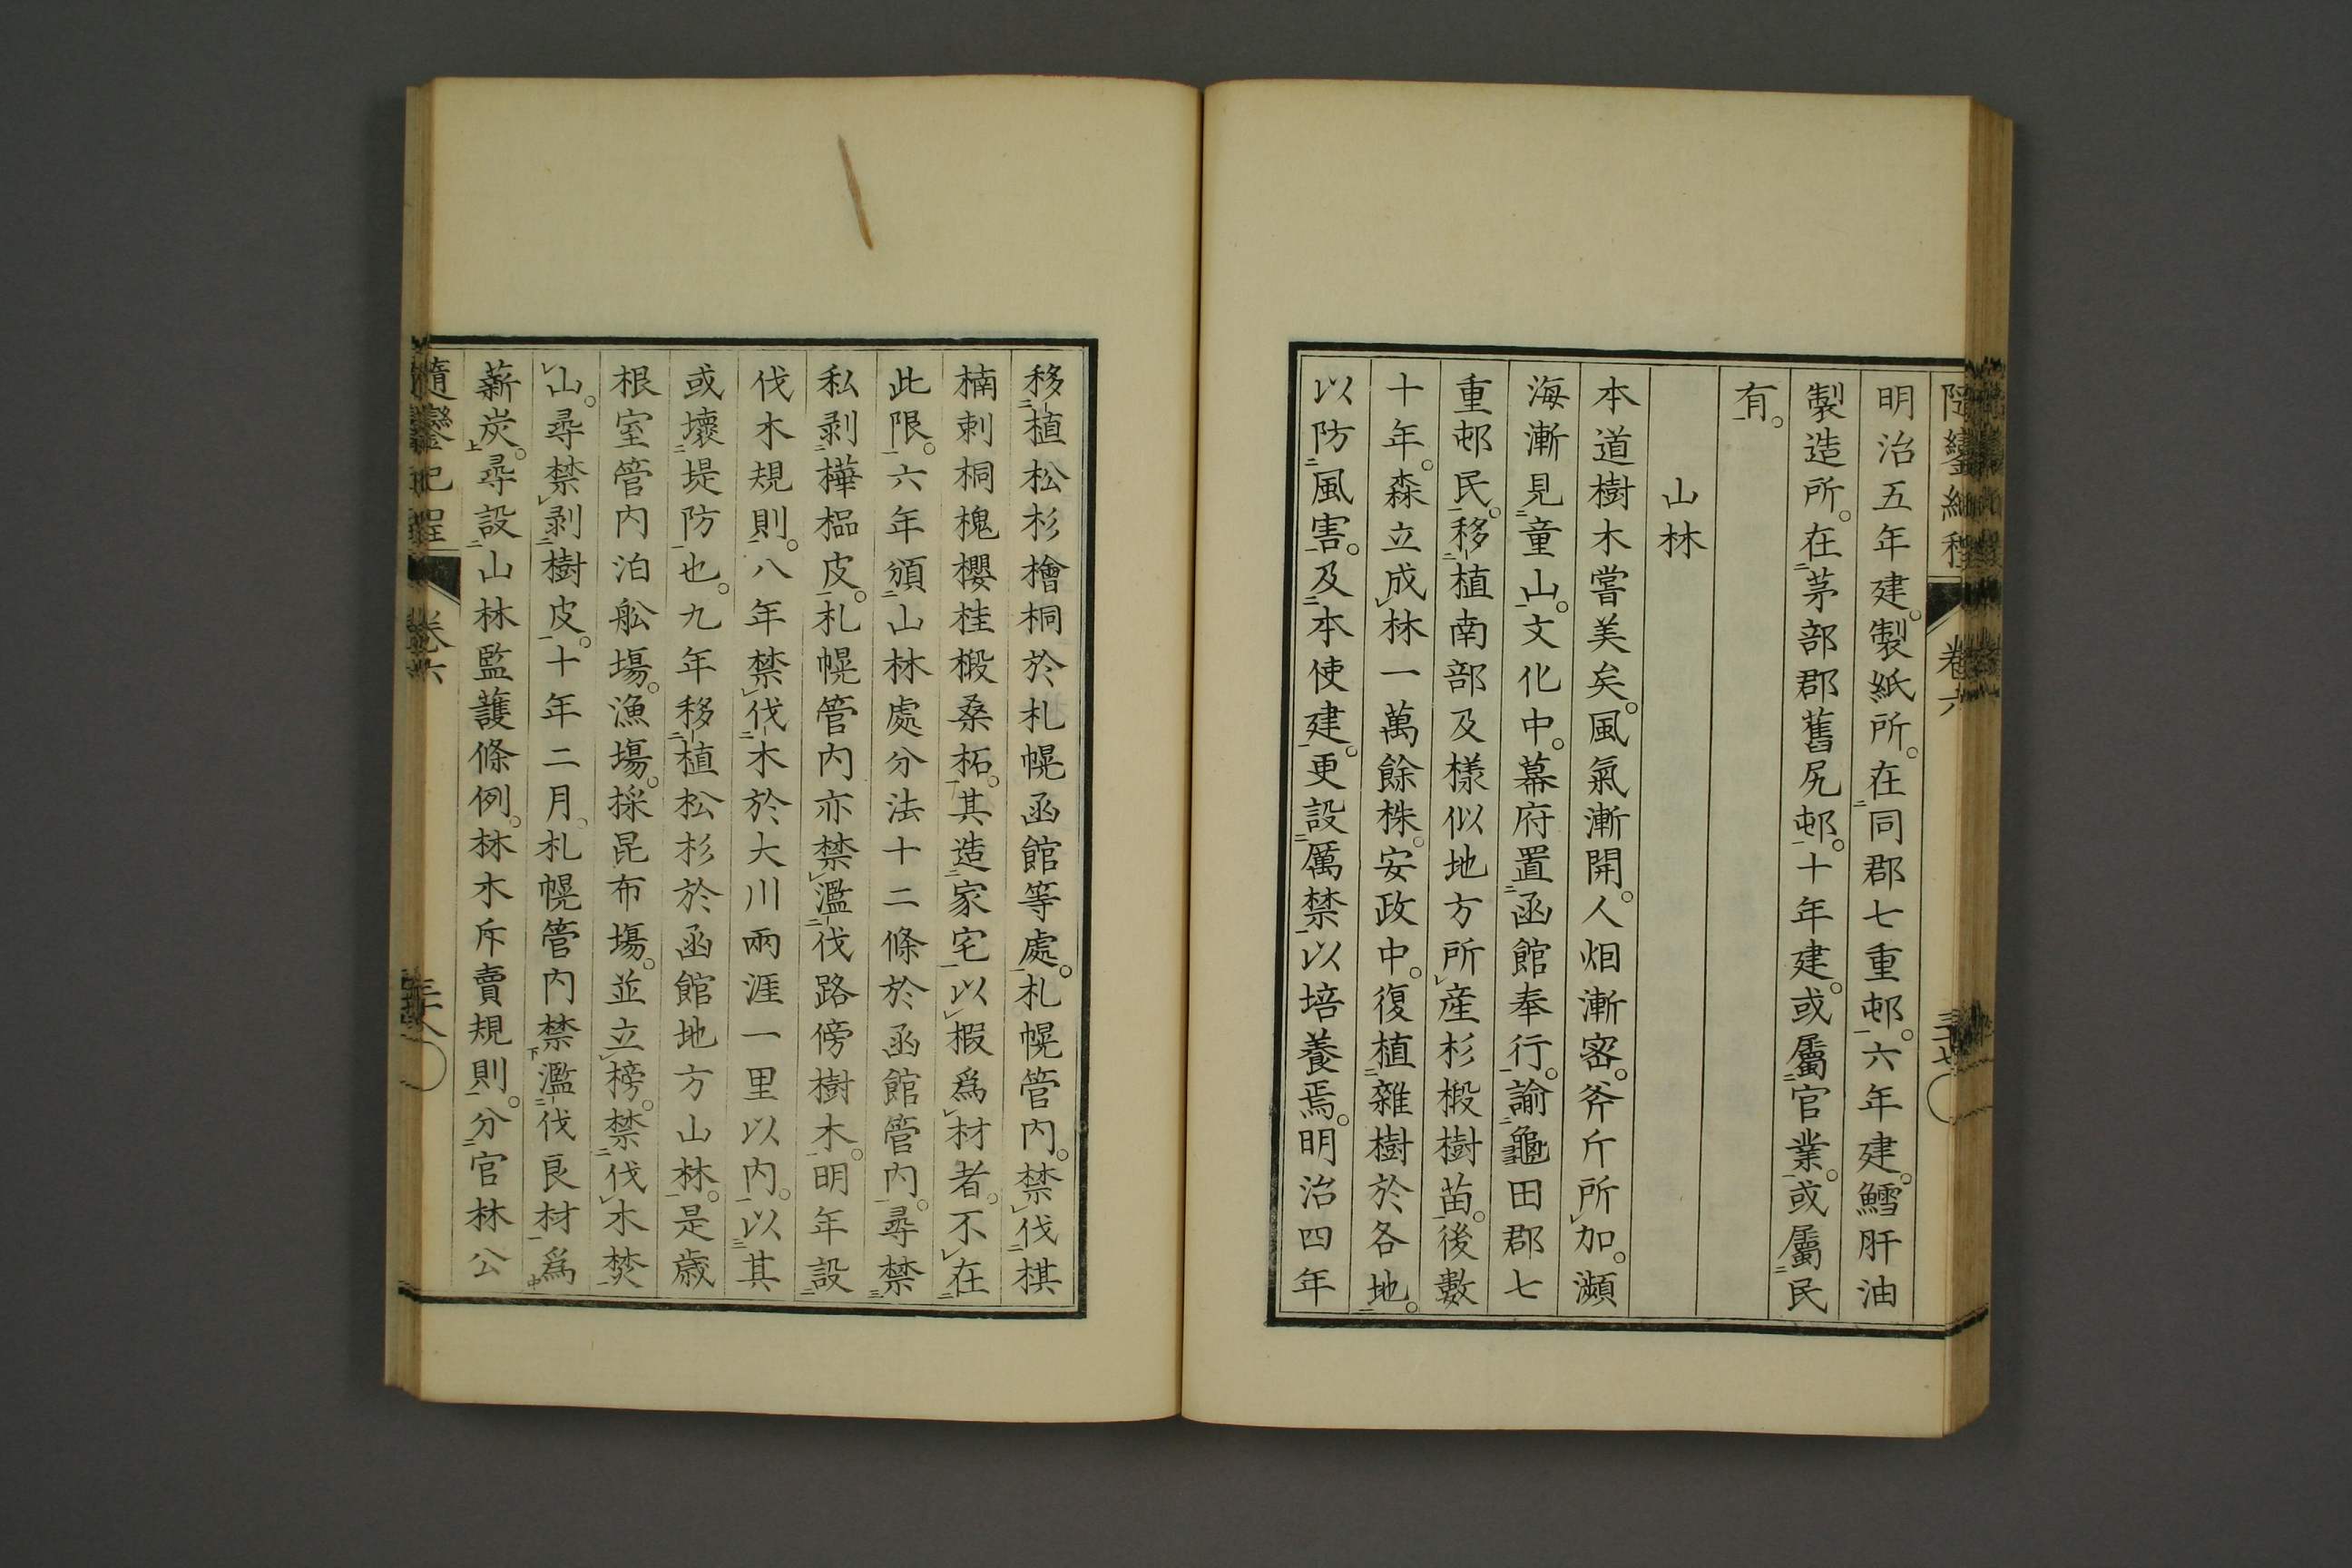 隨鑾紀程 卷六 三十七
明治五年建。製紙所。在同郡七重邨。六年建。鱈肝油
製造所。在茅部郡舊尻邨。十年建。或屬官業。或屬民
有。
山林
本道樹木嘗美矣。風氣漸開。人烟漸密。斧斤所加。瀕
海漸見童山。文化中。幕府置函館奉行。諭龜田郡七
重邨民。移植南部及樣似地方所產杉椴樹苗。後數
十年。森立成林一萬餘株。安政中。復植雜樹於各地。
以防風害。及本使建。更設厲禁。以培養焉。明治四年
移植松杉檜桐於札幌函館等處。札幌管内。禁伐棋
楠刺桐槐櫻桂椴桑柘。其造家宅。以椵爲材者。不在
此限。六年頒山林處分法十二條於函館管内。尋禁
私剥樺榀皮。札幌管内亦禁濫伐路傍樹木。明年設
伐木規則。八年禁伐木於大川兩涯一里以内。以其
或壞堤防也。九年移植松杉於函館地方山林。是歲
根室管内泊舩塲。漁塲。採昆布塲。並立榜。禁伐木焚
山。尋禁剥樹皮。十年二月。札幌管内禁濫伐良材爲
薪炭。尋設山林監護條例。林木斥賣規則。分官林公
隨鑾紀程 卷六 三十八